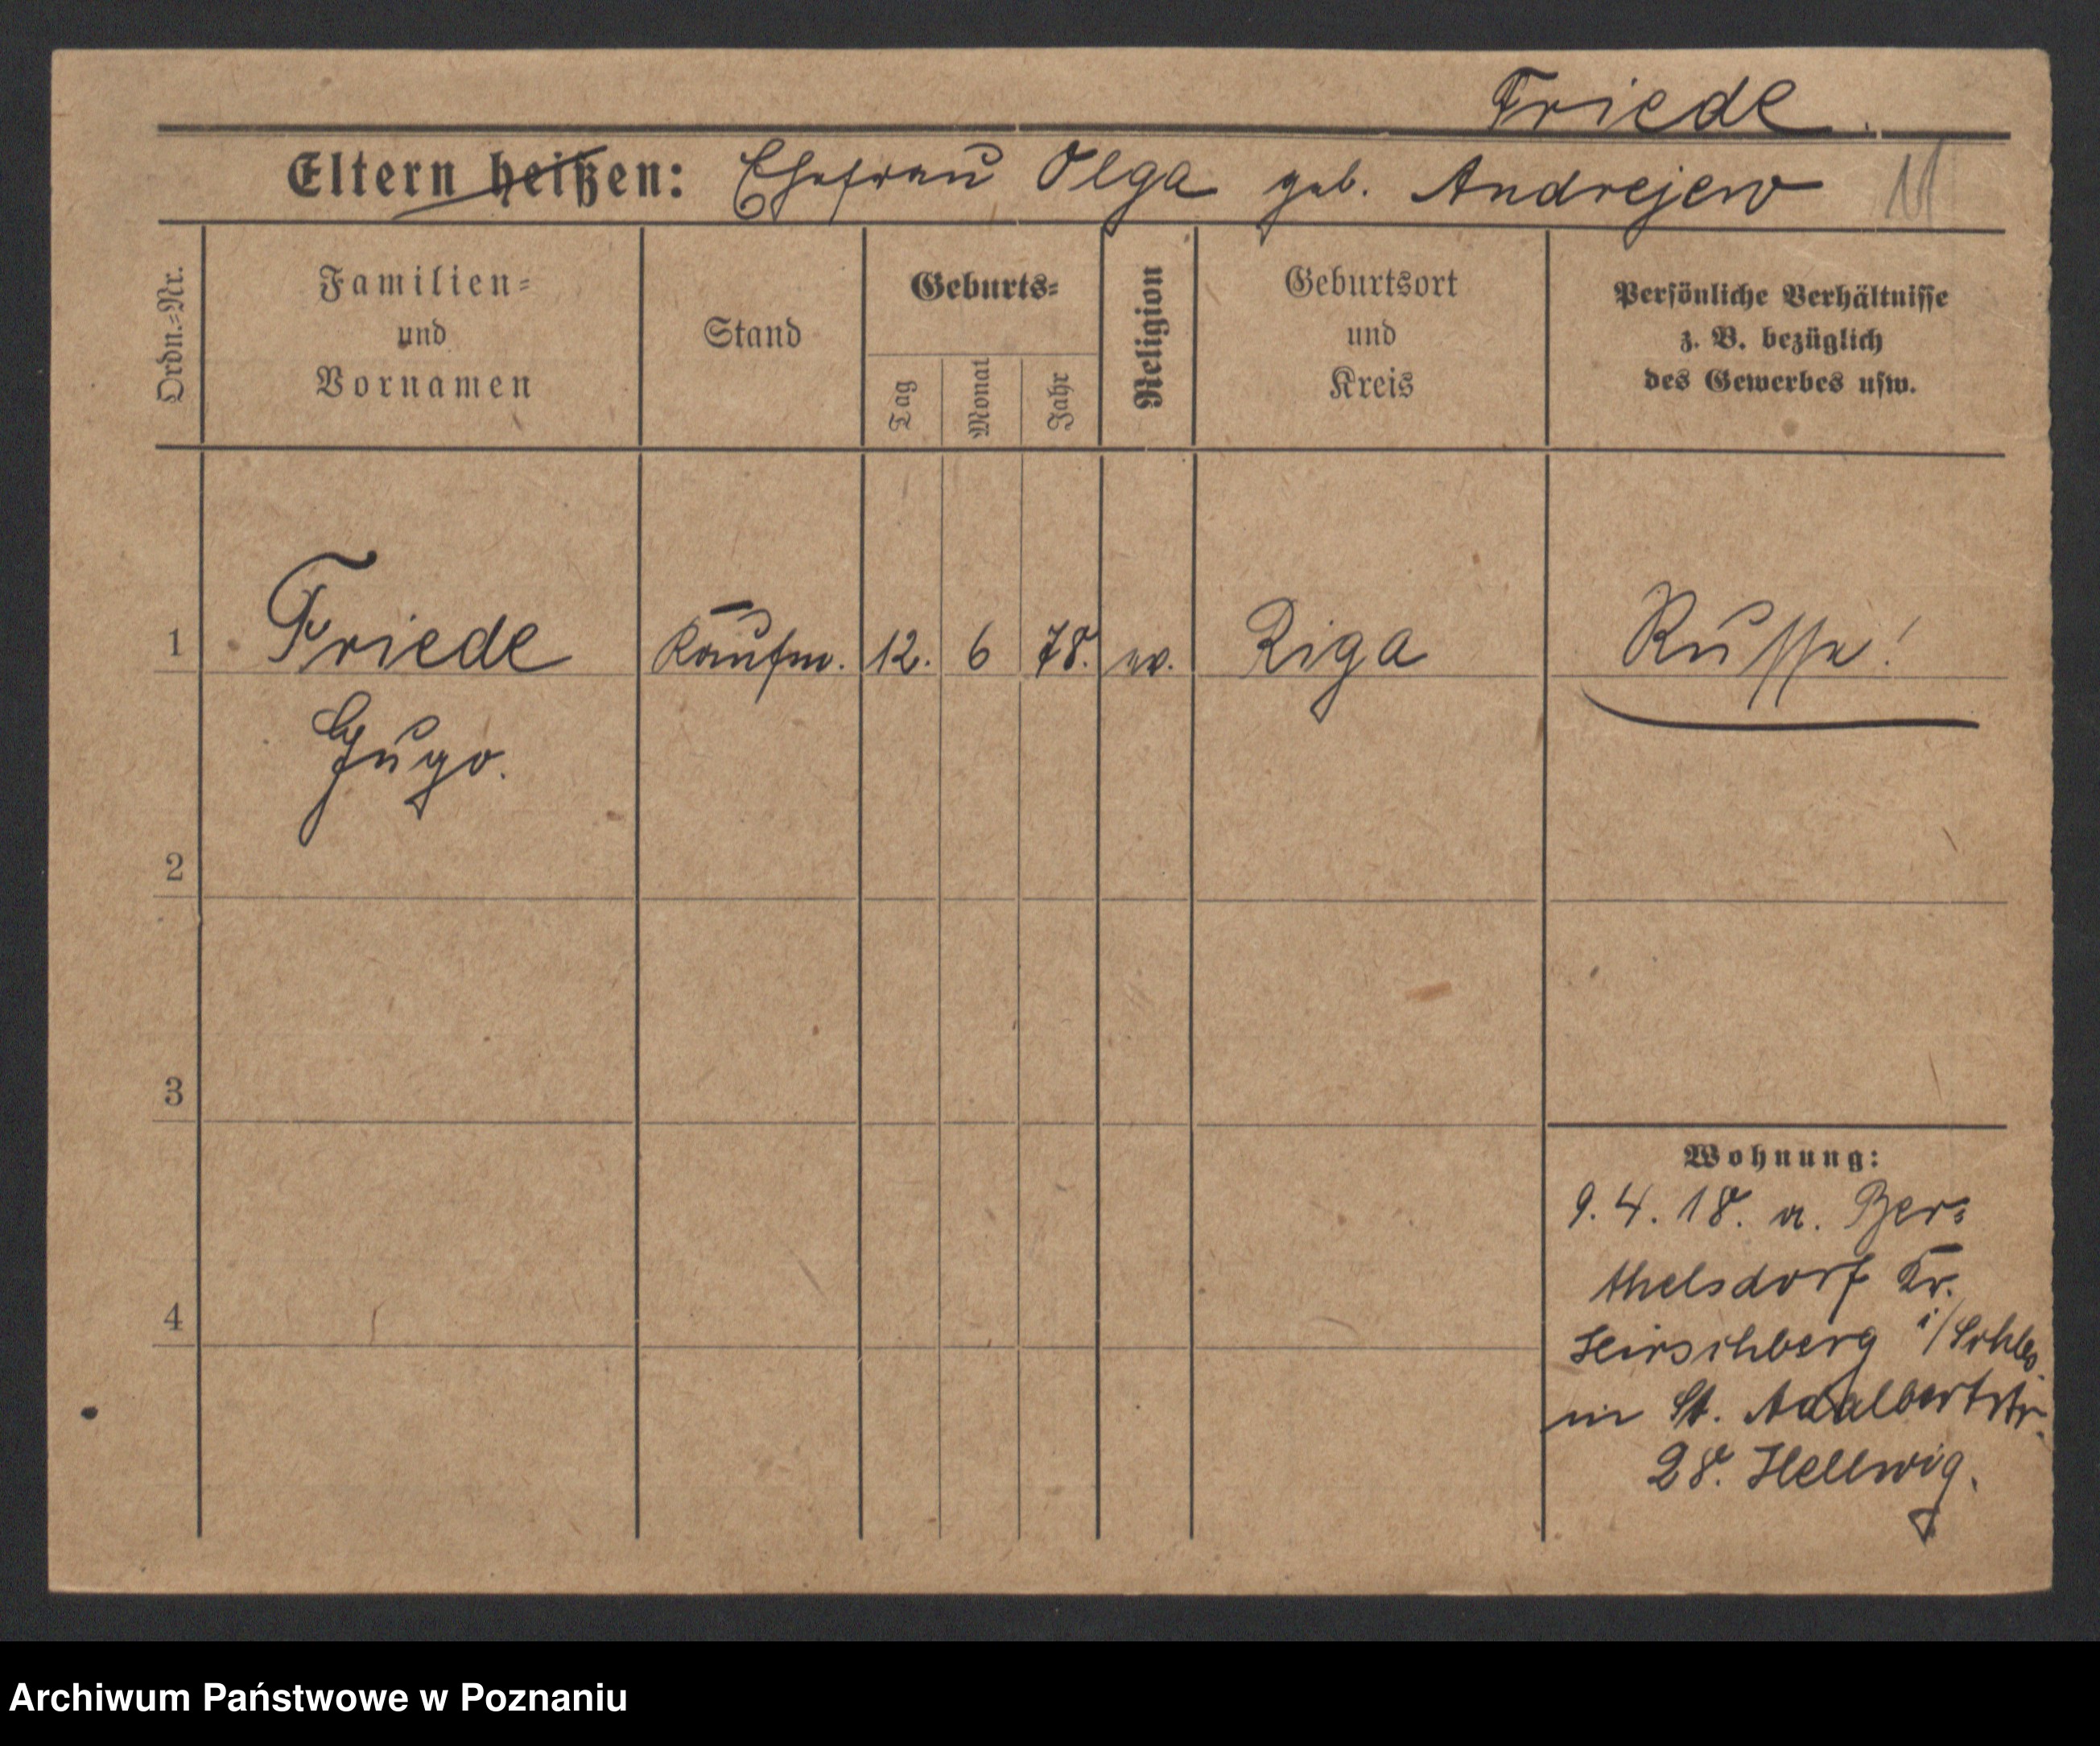 Friede.
Eltern heißen: Ehefrau Olga geb. Andrejew
Ordn.-Nr.
Familien-
und
Vornamen
Stand
Geburts-
Tag
Monat
Jahr
Religion
Geburtsort
und
Kreis
Persönliche Verhältnisse
z. B. bezüglich
des Gewerbes usw.
1 Friede Kaufm. 12. 6 78. ev. Riga Russe!
Hugo.
2
3
4
Wohnung:
9.4.18. a. Ber-
thelsdorf Kr.
Hirschberg i/Schles.
in St. Adalbertstr.
28. Hellwig.
Archiwum Państwowe w Poznaniu